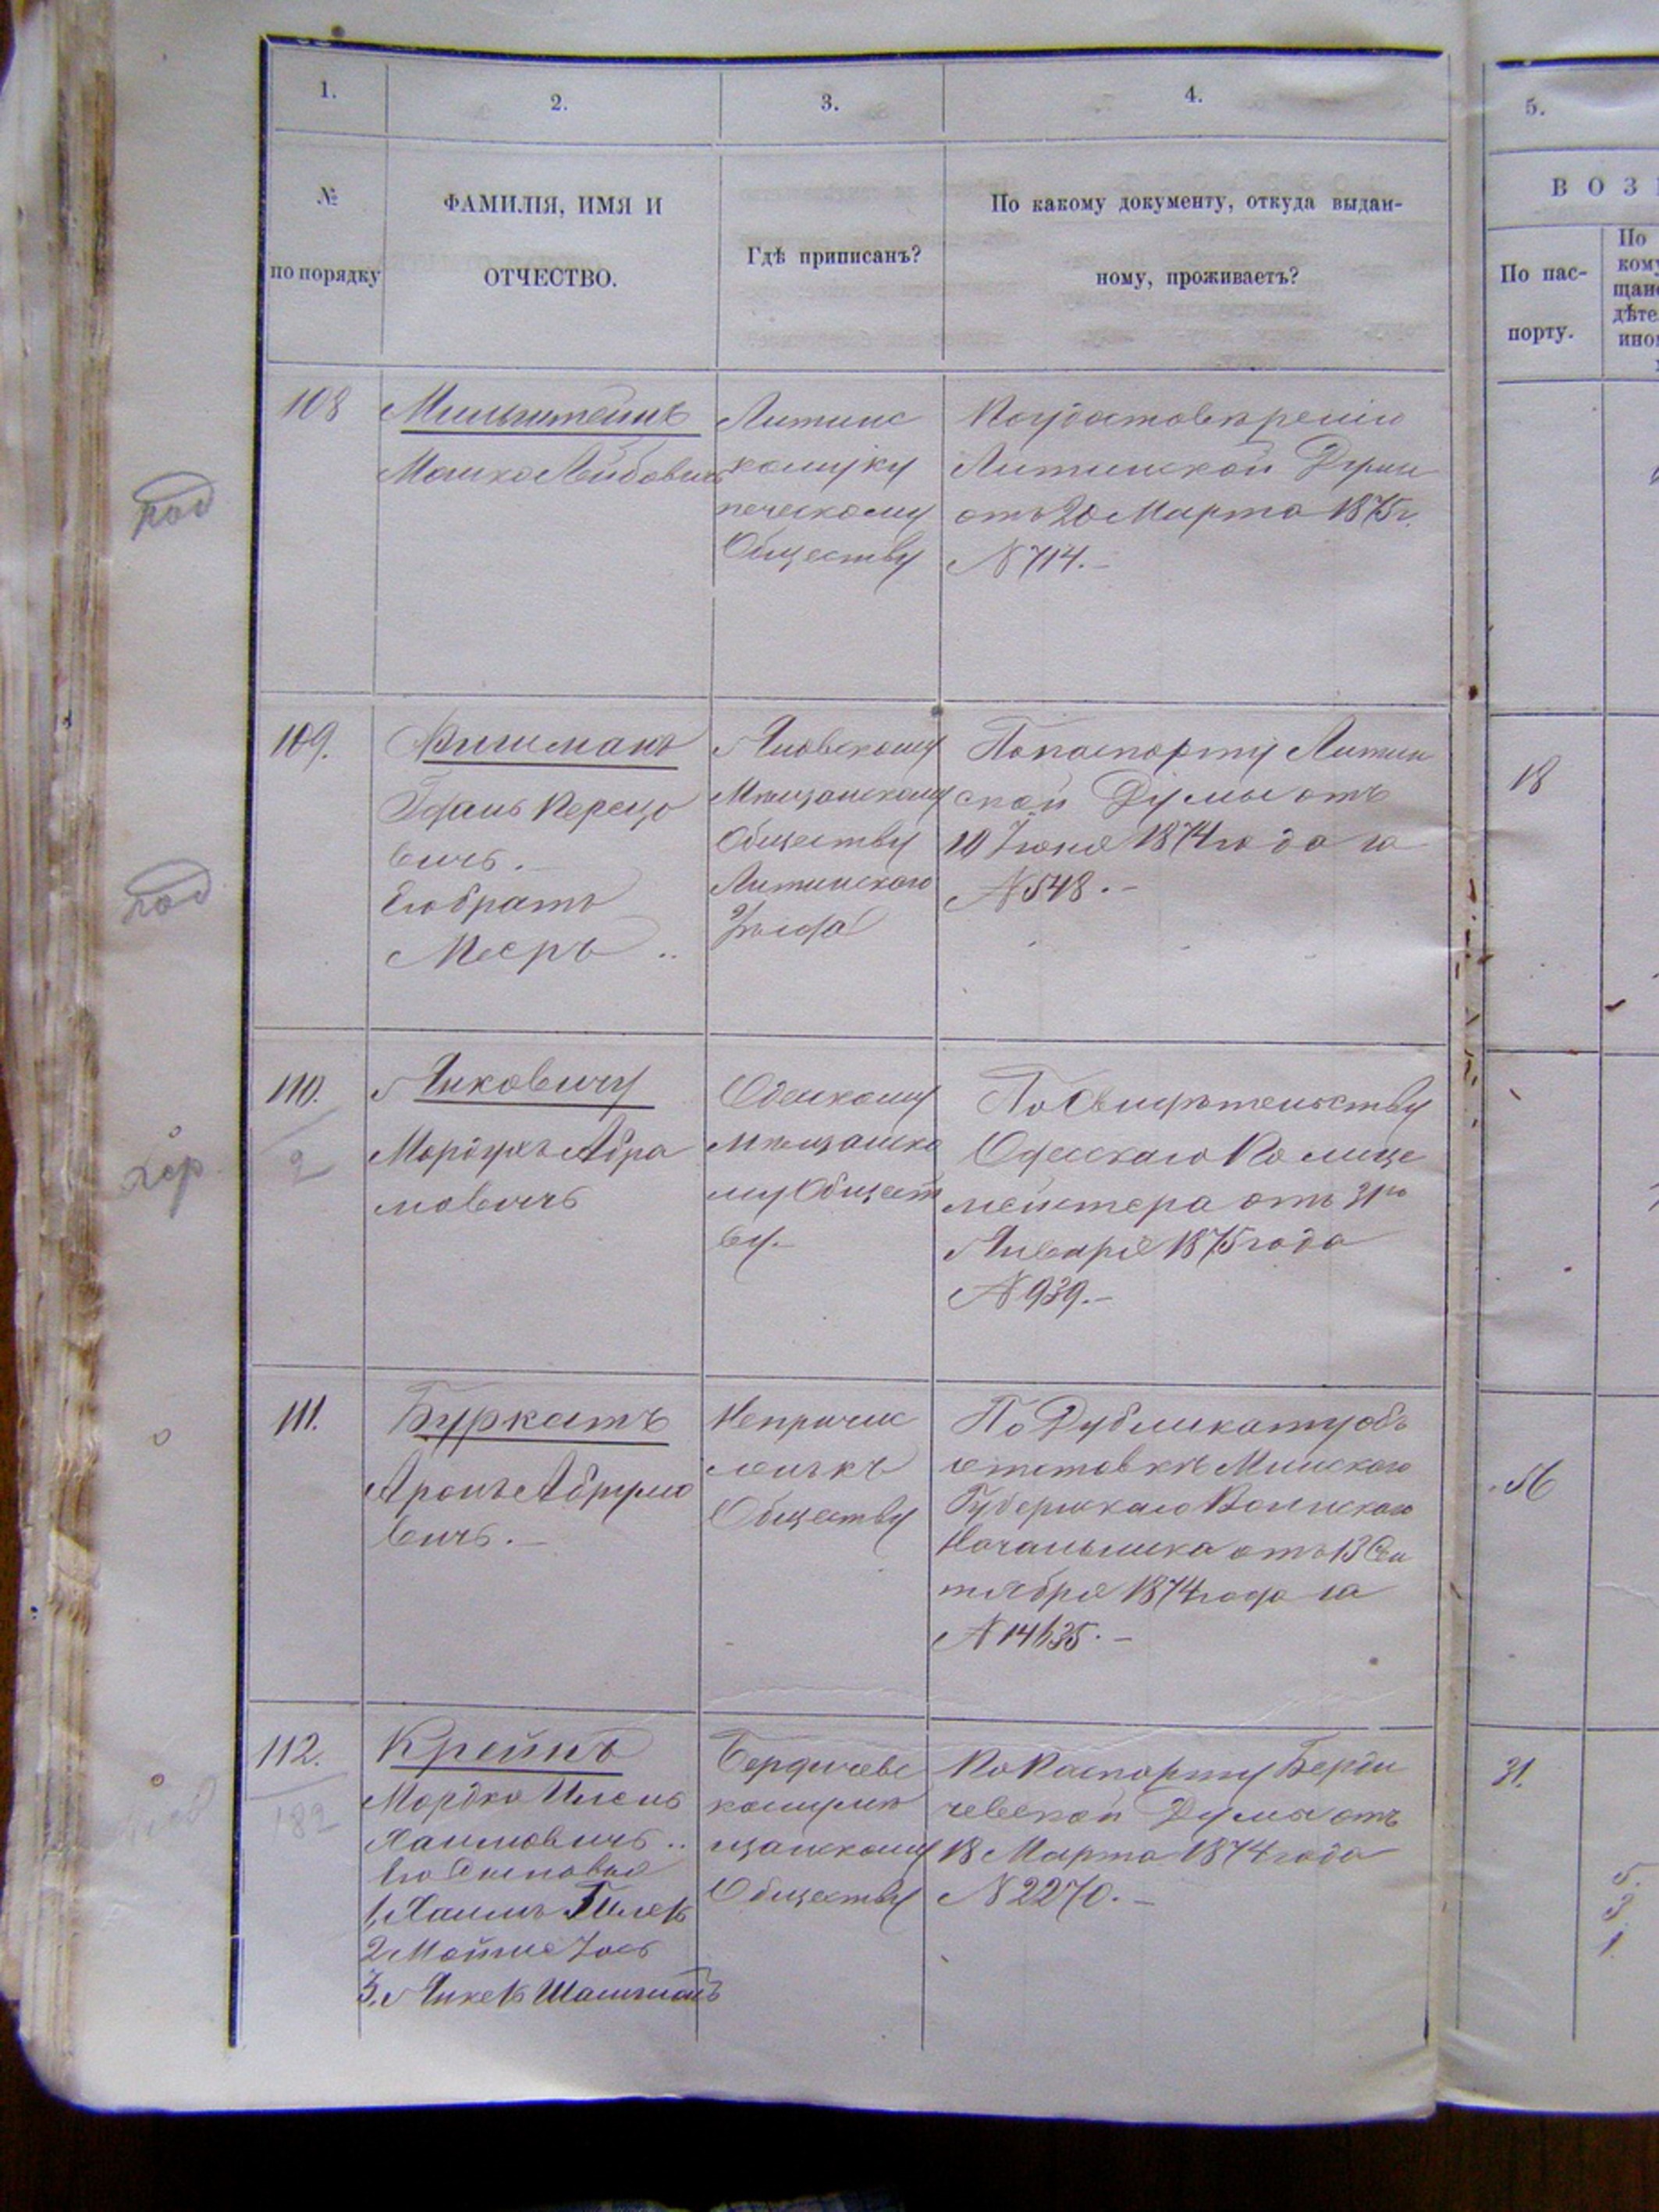 1.
2.
3.
4.
5.
№
по порядку
ФАМИЛІЯ, ИМЯ И
ОТЧЕСТВО.
Гдѣ приписанъ?
По какому документу, откуда выдан-
ному, проживаетъ?
В О З
По пас-
порту.
По
кому
щан
дѣте
ино
108
Мильштейнъ
Мошко Лейбовичъ
Литинс
комуку
печескому
Обществу
Поудостовѣренію
Литинской Думы
отъ 20 Марта 1875 г.
N 714.–
под
109.
Герецо
вичъ.–
Его братъ
Мееръ ..
Яновскому
Мѣщанскому
Обществу
Литинского
Уѣзда
По паспорту Литин
ской Думы отъ
10 Іюня 1874 года за
N 548.–
18
под
110.
2
Янковичу
Мордухъ Абра
мовичъ
Одескому
Мѣщанско
му Общест
ву.–
По Свидѣтельству
Одесскаго Полице
мейстера отъ 31го
Января 1875 года
N 939.–
хер
111.
Буркатъ
Аронъ Абрумо
вичъ.–
Непричис
ленъ къ
Обществу
По Дубликату объ
отставкѣ Минскаго
Губернскаго Воинскаго
Начальника отъ 13 Сен
тября 1874 года за
N 14635.–
56
112.
182
Крейнъ
Мордко
Хаимовичъ ..
Его Сыновья
1, Хаимъ
2 Іось
3. Янкель
Бердичевс
комумѣ
щанскому
Обществу
По Паспорту Берди
чевской Думы отъ
18 Марта 1874 года
N 2270.–
31.
5.
3
1.